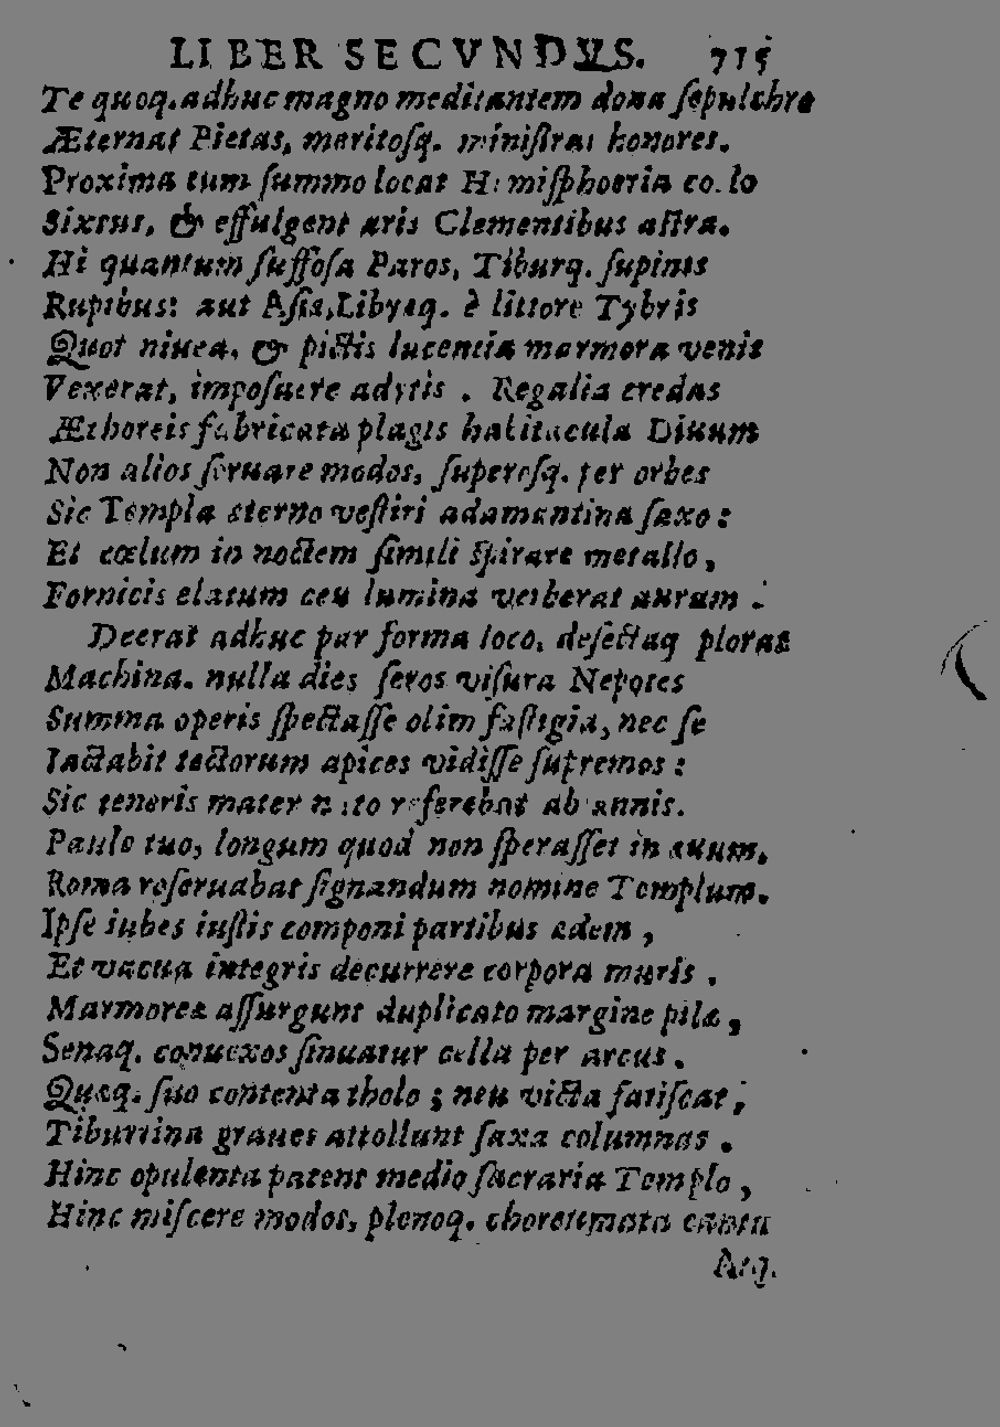 LIBER SECVNDVS. 715
Te quoq. adhuc magno meditantem dona ſepulchro
Æternat Pietas, meritoſq. miniſtrat honores.
Proxima tum ſummo locat H miſphœria co lo
Sixtus, & effulgent aris Clementibus aſtra.
Hi quantum ſuffoſa Paros, Tiburq. ſupinis
Rupibus: aut Aſia, Libyæq. è littore Tybris
Quot niuea, & pictis lucentia marmora venis
Vexerat, impoſuere adytis . Regalia credas
Æthereis fabricata plagis habitacula Diuum
Non alios ſeruare modos, ſuperoſq. per orbes
Sic Templa æterno veſtiri adamantina ſaxo :
Et cœlum in noctem ſimili ſpirare metallo ,
Fornicis elatum ceu lumina verberat aurum .
Deerat adhuc par forma loco, defectaq plorat
Machina. nulla dies ſeros viſura Nepotes
Summa operis ſpectaſſe olim faſtigia, nec ſe
Iactabit tectorum apices vidiſſe ſupremos :
Sic teneris mater nato referebat ab annis.
Paulo tuo, longum quod non ſperaſſet in æuum,
Roma reſeruabat ſignandum nomine Templum.
Ipſe iubes iuſtis componi partibus ædem ,
Et vacua integris decurrere corpora muris .
Marmoreæ aſſurgunt duplicato margine pilæ ,
Senaq. conuexos ſinuatur cella per arcus .
Quæq. ſuo contenta tholo ; neu victa fatiſcat ,
Tiburtina graues attollunt ſaxa columnas .
Hinc opulenta patent medio ſacraria Templo ,
Hinc miſcere modos, plenoq. choreumata cantu